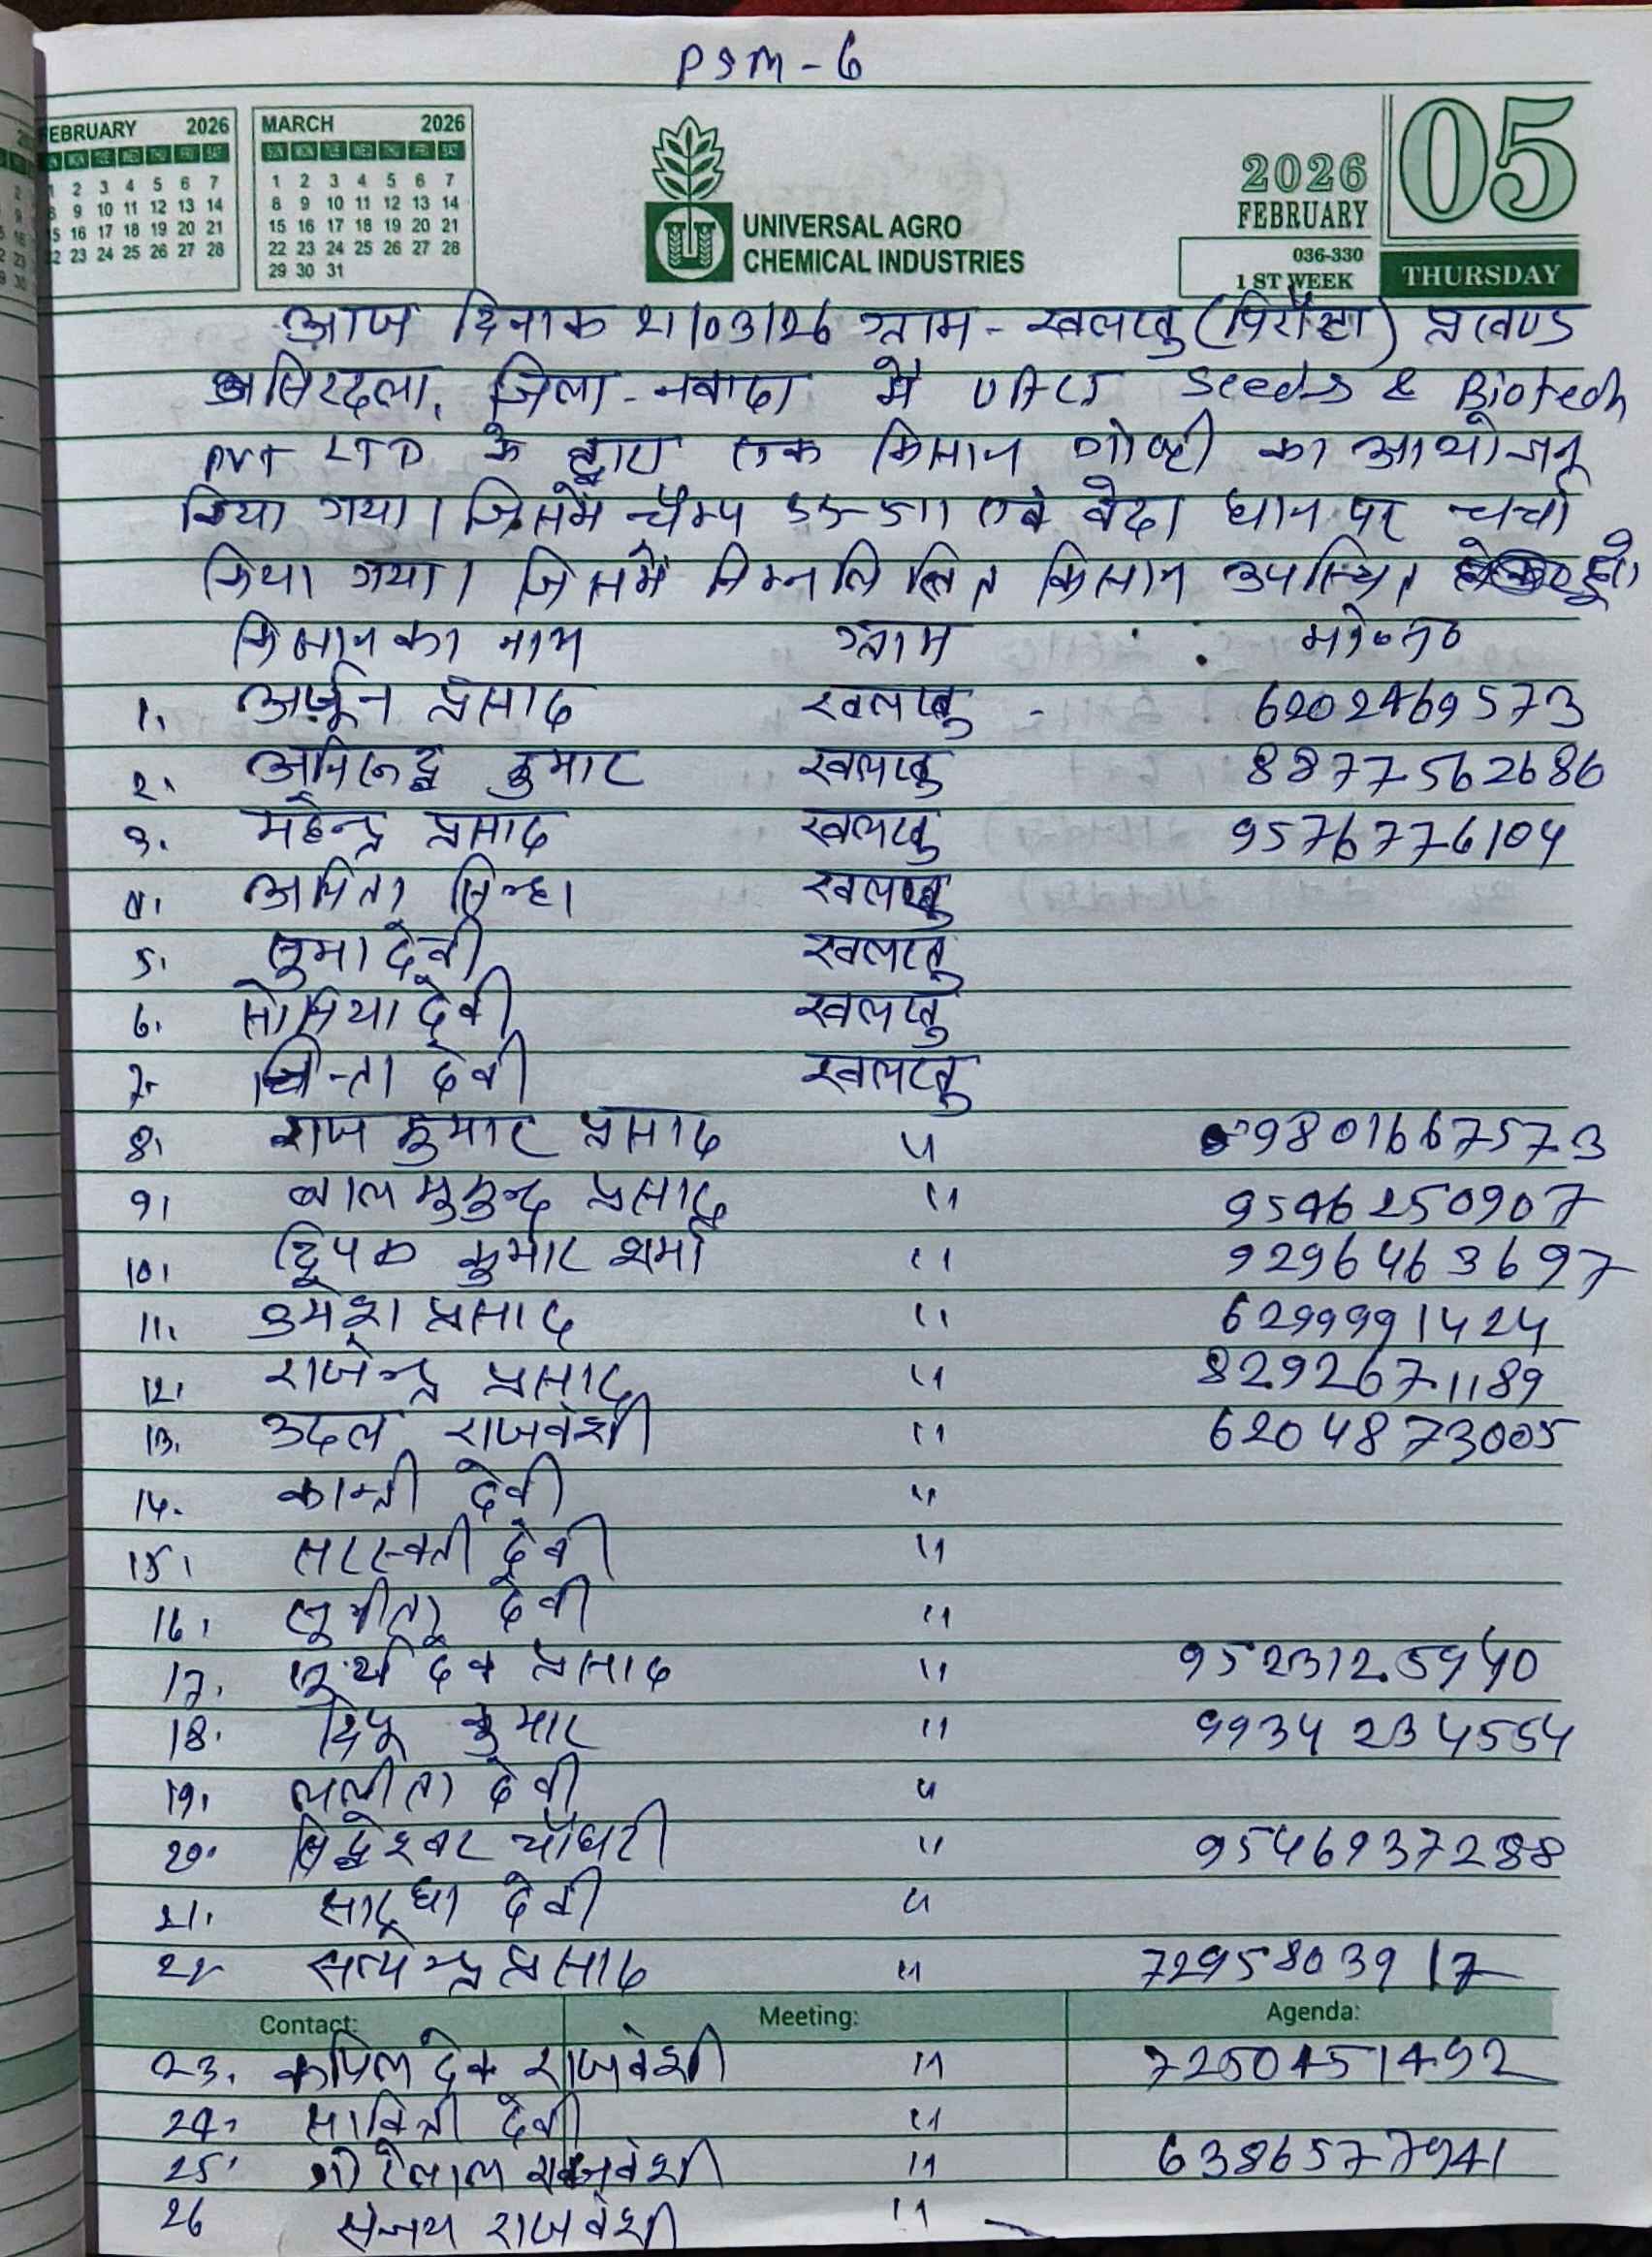 PSM - 6
FEBRUARY 2026
SUN MON TUE WED THU FRI SAT
1 2 3 4 5 6 7
8 9 10 11 12 13 14
15 16 17 18 19 20 21
22 23 24 25 26 27 28
MARCH 2026
SUN MON TUE WED THU FRI SAT
1 2 3 4 5 6 7
8 9 10 11 12 13 14
15 16 17 18 19 20 21
22 23 24 25 26 27 28
29 30 31
UNIVERSAL AGRO
CHEMICAL INDUSTRIES
2026
FEBRUARY
036-330
1 ST WEEK
05
THURSDAY
आज दिनाक 21/03/26 ग्राम - खलखु (पिरौटा) प्रखण्ड
असिरदला, जिला - नवादा में UACI Seeds & Biotech
PVT LTD के द्वारा एक किसान गोष्टी का आयोजन
किया गया। जिसमें चैम्प 55-511 एवं वेदा धान पर चर्चा
किया गया। जिसमें निम्नलिखित किसान उपस्थित हुए।
किसान का नाम ग्राम मो०न०
1. अर्जून प्रसाद खलखु - 6202469573
2. अनिरूद्ध कुमार खलखु 8877562686
3. महेन्द्र प्रसाद खलखु 9576776104
4. अमिता सिन्हा खलखु
5. सुमा देवी खलखु
6. सोमिया देवी खलखु
7. चिन्ता देवी खलखु
8. राज कुमार प्रसाद " 9801667573
9. बाल मुकुन्द प्रसाद " 9546250907
10. दिपक कुमार शर्मा " 9296463697
11. उमेश प्रसाद " 6299991424
12. राजेन्द्र प्रसाद " 8292671189
13. उदल राजवंशी " 6204873005
14. कान्ती देवी "
15. सरस्वती देवी "
16. सुनीता देवी "
17. सूर्य देव प्रसाद " 9523125940
18. दिपू कुमार " 9934234554
19. ललीता देवी "
20. सिद्धेश्वर चौधरी " 9546937288
21. सारधा देवी "
22 सत्येन्द्र प्रसाद " 7295803917
Contact: Meeting: Agenda:
23. कपिल देव राजवंशी " 7250451492
24. सावित्री देवी "
25. गोरेलाल राजवंशी " 6386577941
26 संजय राजवंशी "